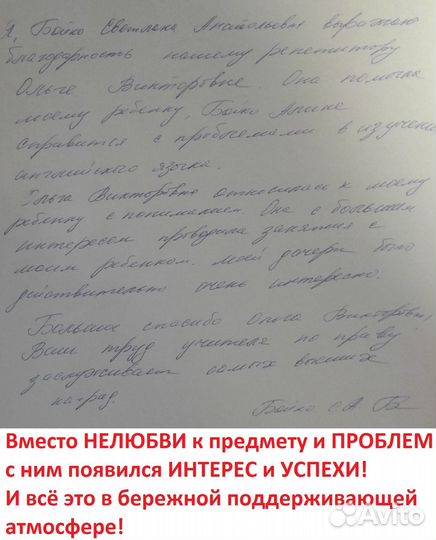 Я, Бойко Светлана Анатольевна выражаю
благодарность нашему репетитору
Ольге Викторовне. Она помогла
моему ребенку, Бойко Алине
справится с проблемами в изучении
английского языка.
Ольга Викторовна относилась к моему
ребенку с пониманием. Она с большим
интересом проводила занятия с
моим ребенком. Моей дочери было
действительно очень интересно.
Большое спасибо Ольга Викторовна,
Ваш труд учителя по праву
заслуживает самых высших
наград.
Бойко С.А.
Вместо НЕЛЮБВИ к предмету и ПРОБЛЕМ
с ним появился ИНТЕРЕС и УСПЕХИ!
И всё это в бережной поддерживающей
атмосфере!
Avito